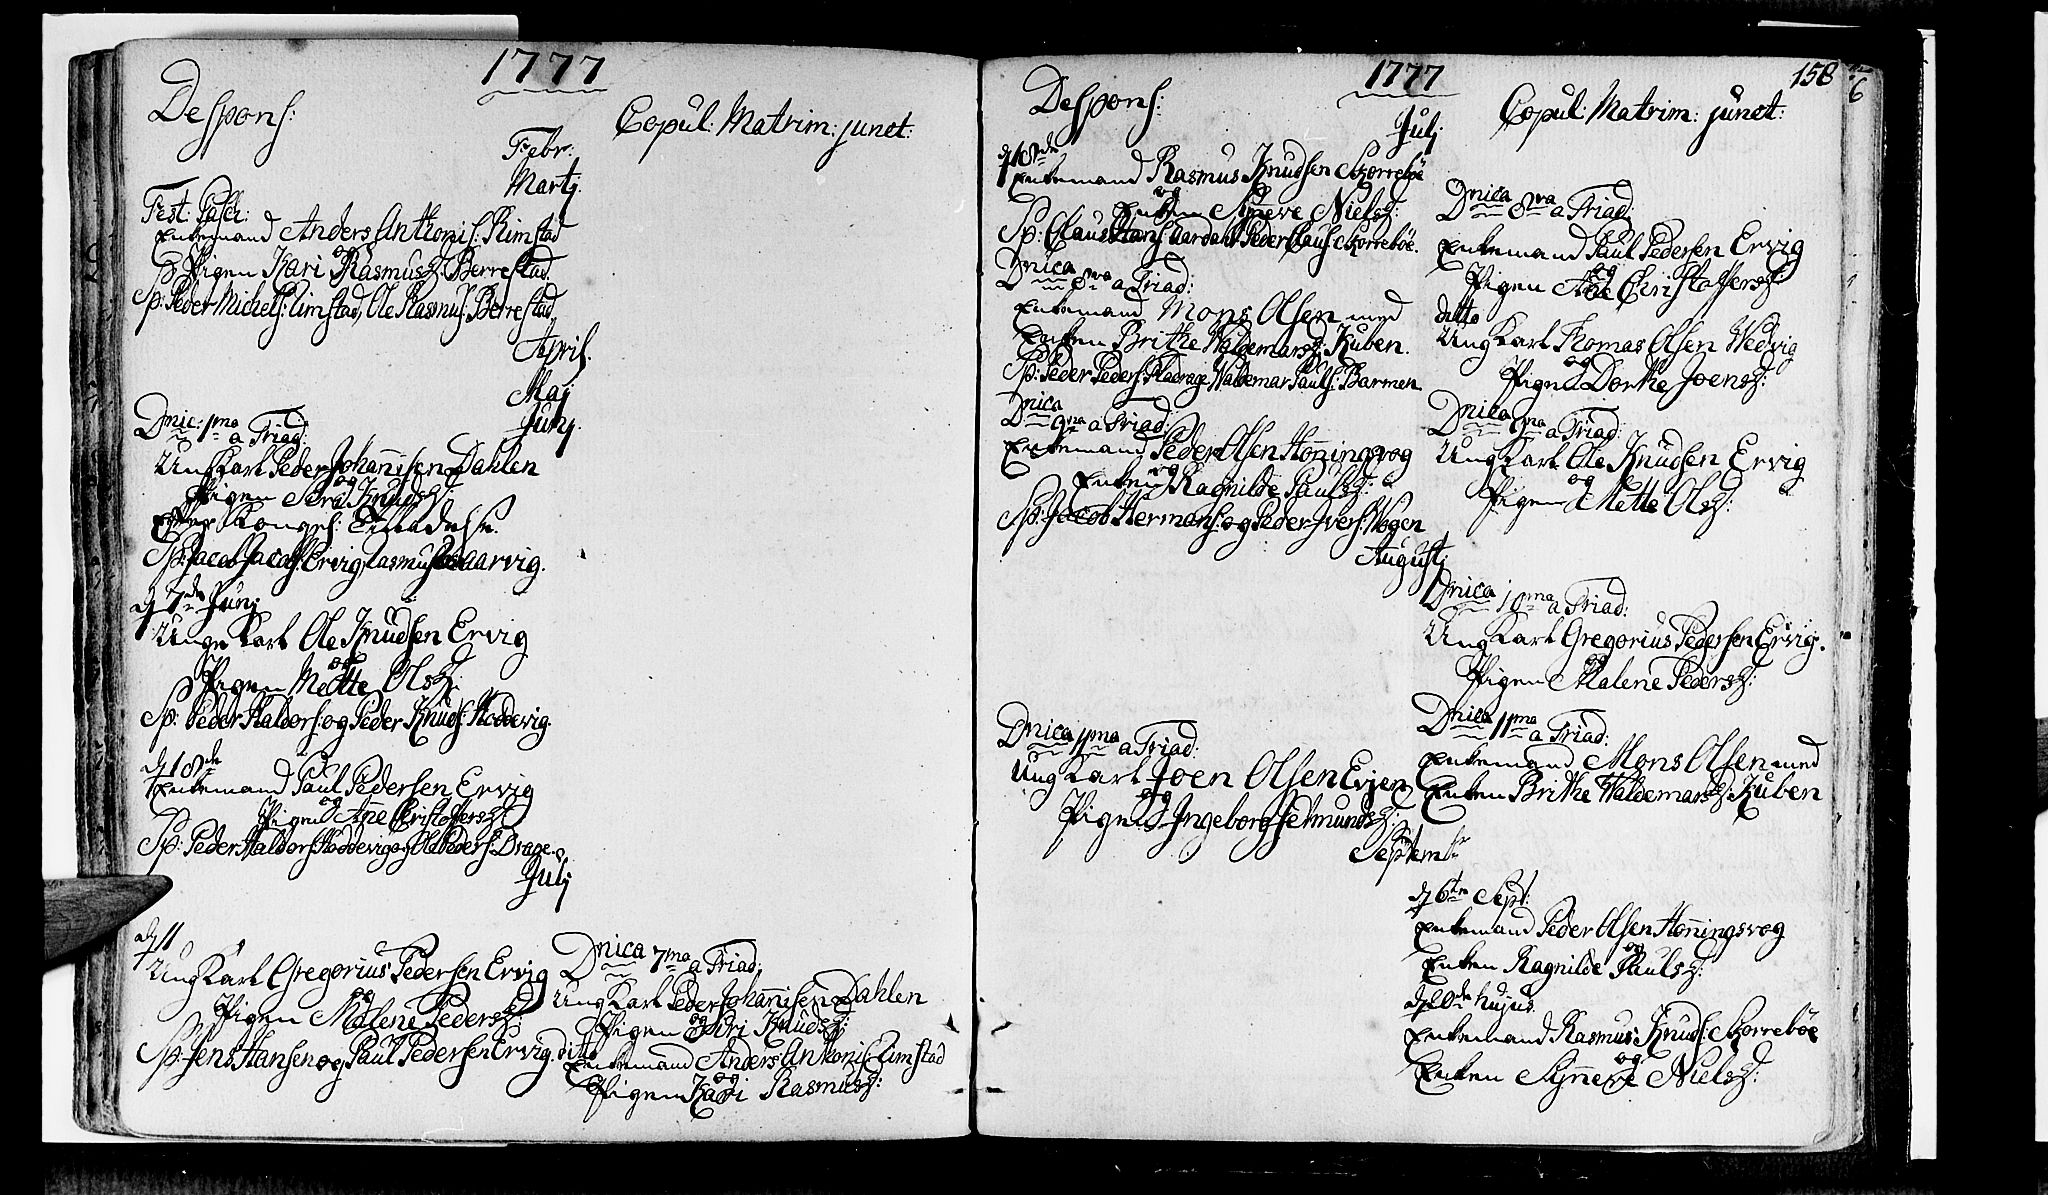 1777
Despons:
Copul: Matrim: junct:
Febr:
Martj.
Fest: Pasch:
Enkemand Anders Anthonis: Rimstad
og
Pigen Kari Rasmusd: Berrestad.
Sp: Peder Michels: Rimstad, Ole Rasmus: Berrestad.
April.
Maj
Junj.
Dnic: 1ma a Triad:
Ung Karl Peder Johannisen Dahlen
og
Pigen Siri Knudsd:
efter Kongel: Tilladelse.
Sp: Jacob Jacobs: Ervig, Rasmus Aarvig.
d 7de Junj
Unge Karl Ole Knudsen Ervig
og
Pigen Mette Olsd:
Sp: Peder Haldors: og Peder Knuds: Hoddevig.
d 18de
Enkemand Paul Pedersen Ervig
og
Pigen Ane Christophersd:
Sp: Peder Haldors: Hoddevig og Ole Peders: Drage.
Julj
d 11
Ung Karl Gregorius Pedersen Ervig
og
Pigen Malene Pedersd:
Sp: Jens Hansen og Paul Pedersen Ervig.
Dnica 7ma a Triad:
Ung Karl Peder Johannisen Dahlen
og
Pigen Siri Knudsd:
ditto
Enkemand Anders Anthonis: Rimstad
og
Pigen Kari Rasmusd:
1777
158
6
Despons:
Copul: Matrim: junct:
Julj
d 18de
Enkemand Rasmus Knudsen Skorrebøe
og
Enken Synneve Nielsd:
Sp: Claus Hans: Aardahl, Peder Claus: Skorrebøe.
Dnica 8va a Triad:
Enkemand Mons Olsen med
Enken Brithe Waldemarsd: Kuben.
Sp: Peder Peders: Fladrage, Waldemar Pauls: Barmen
Dnica 9na a Triad:
Enkemand Peder Olsen Honningsvog
og
Enken Ragnilde Paulsd:
Sp: Jacob Hermans: og Peder Ivers: Wogen
Augustj
Dnica 11ma a Triad:
Ung Karl Joen Olsen Evjen
og
Pigen Ingeborg Helmundsd:
Septembr
Dnica 8va a Triad:
Enkemand Paul Pedersen Ervig
og
Pigen Ane Christophersd:
ditto
Ung Karl Thomas Olsen Wedvig
og
Pigen Dorthe Joensd:
Dnica 9na a Triad:
Ung Karl Ole Knudsen Ervig
og
Pigen Mette Olsd:
Dnica 10ma a Triad:
Ung Karl Gregorius Pedersen Ervig.
og
Pigen Malene Pedersd:
Dnica 11ma a Triad:
Enkemand Mons Olsen med
Enken Brithe Waldemarsd: Kuben
d 6te Sept:
Enkemand Peder Olsen Honningsvog
og
Enken Ragnilde Paulsd:
d 20de hujus
Enkemand Rasmus Knuds: Skorrebøe
og
Enken Synneve Nielsd: